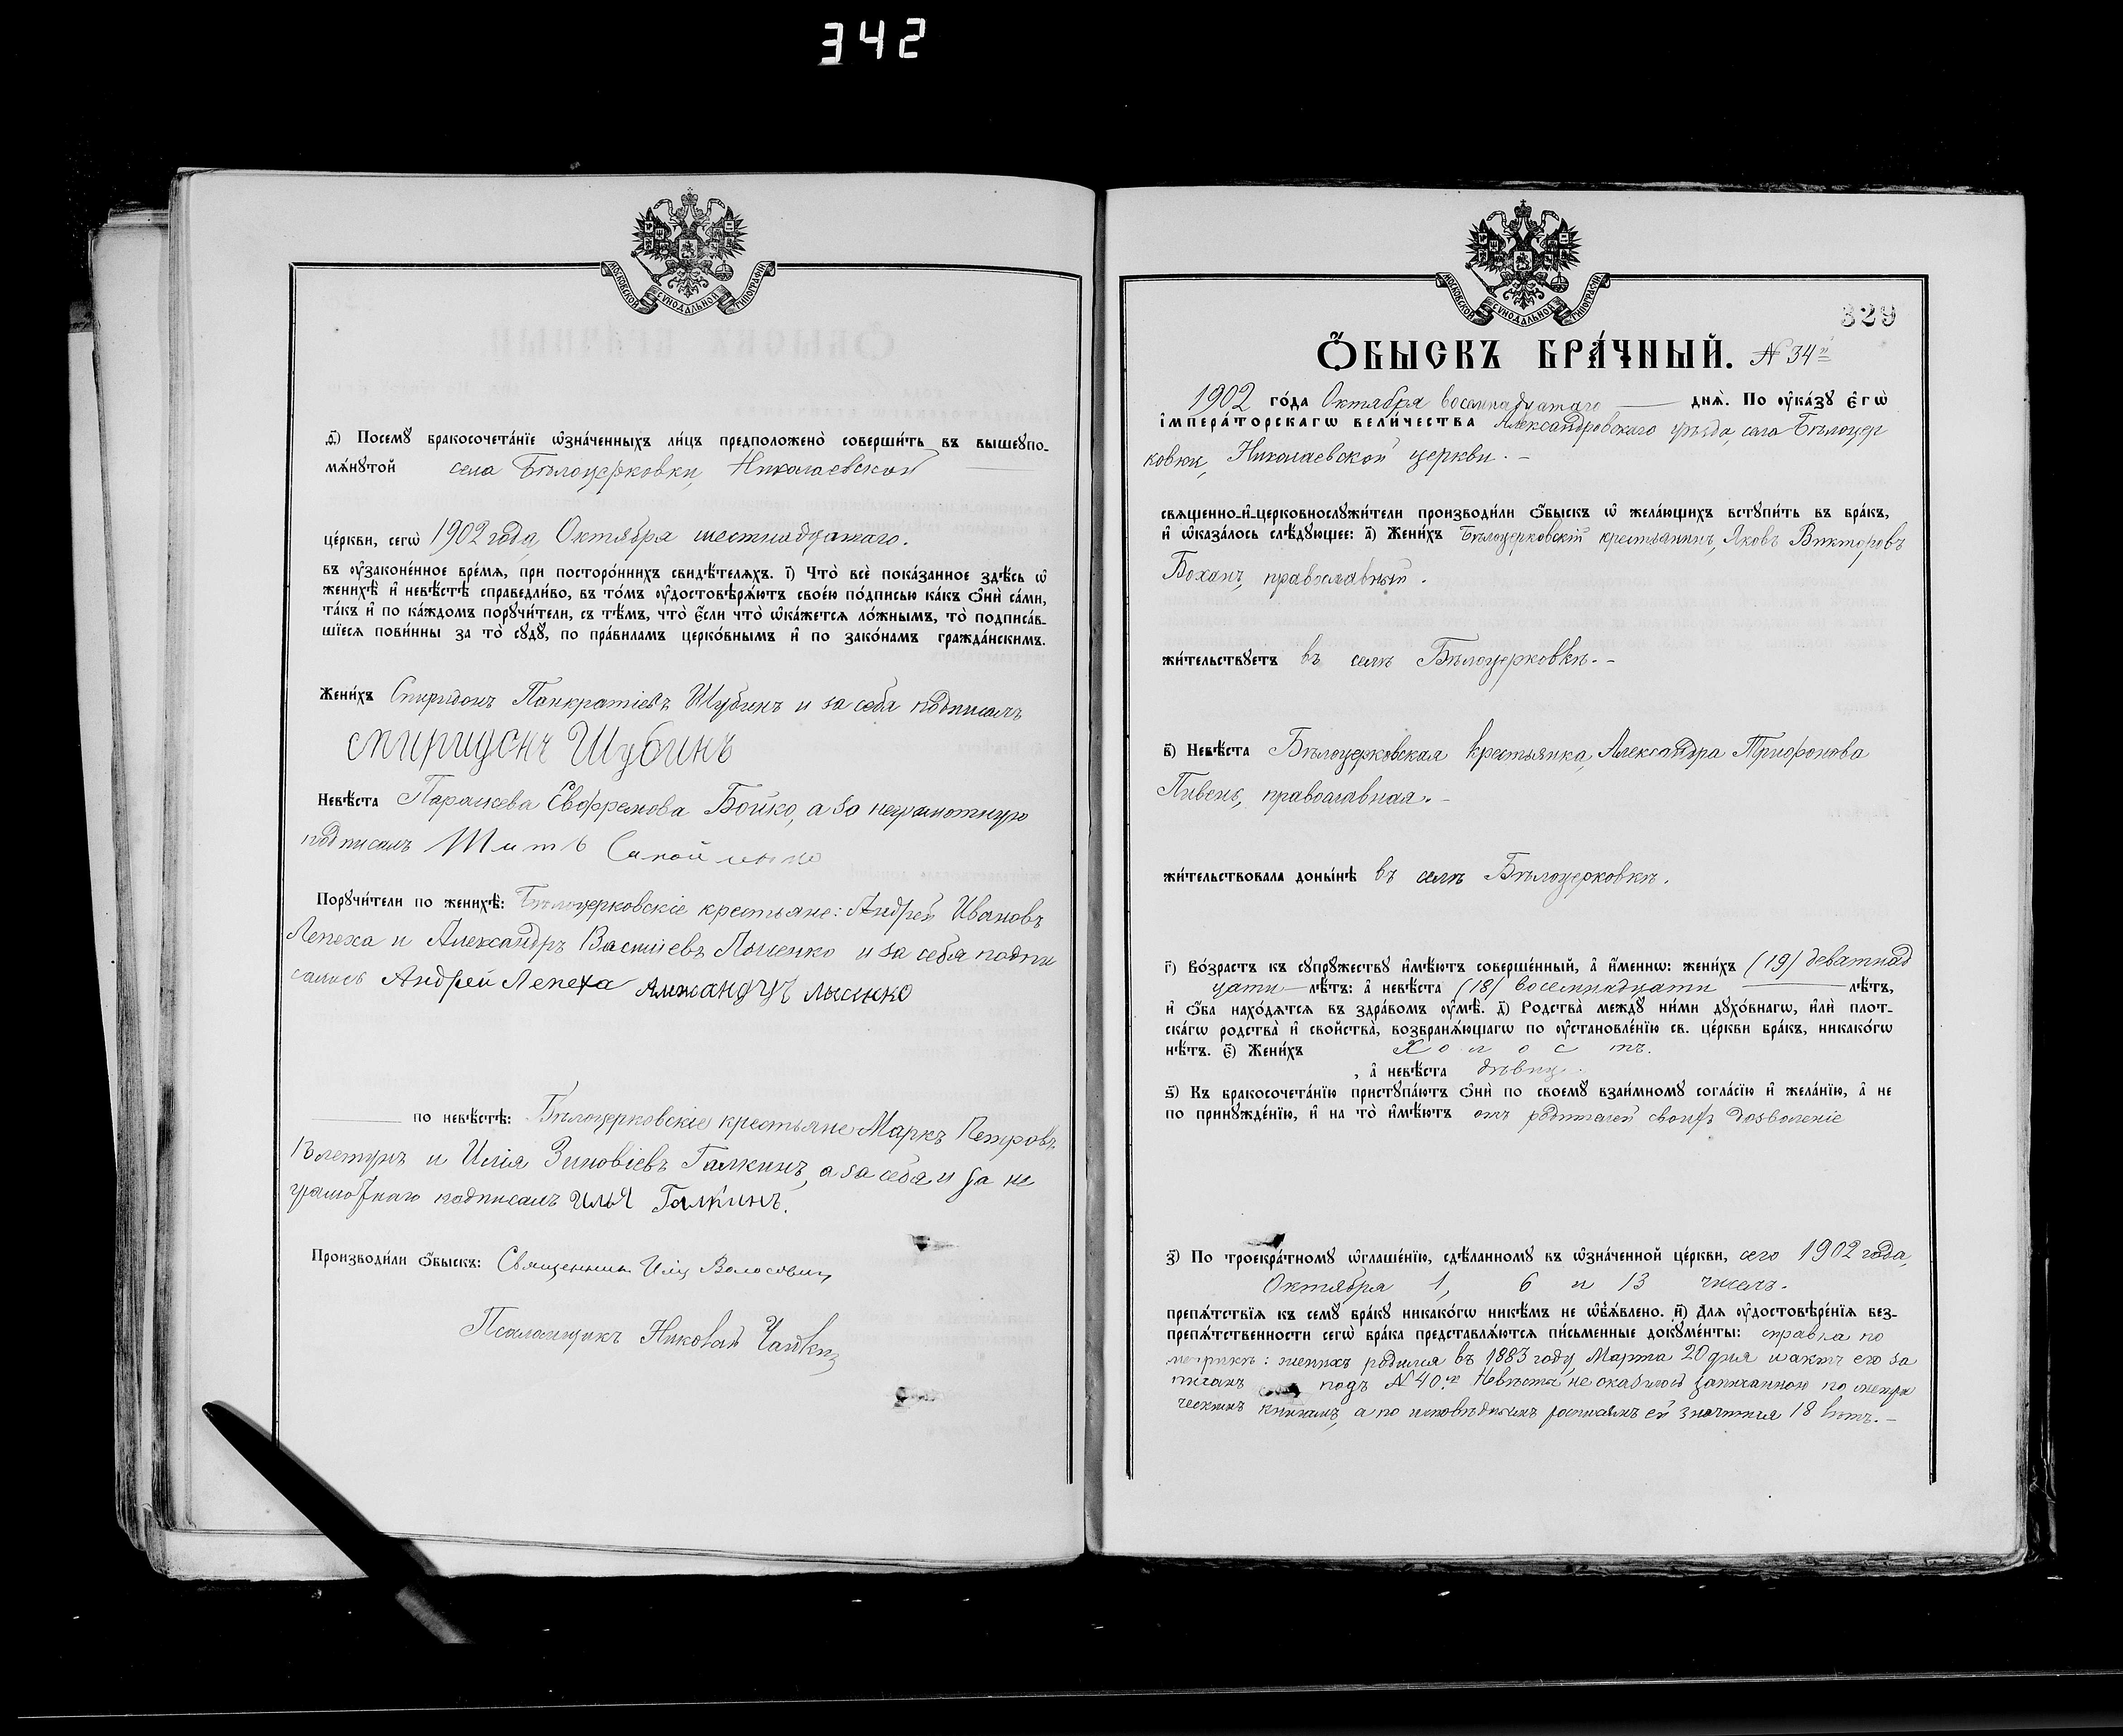 342
МОСКОВСКОЙ СѴНОДАЛЬНОЙ ТИПОГРАФІИ
ѳ҃) Посемꙋ̀ бракосочета́нїе ѡ҆зна́ченныхъ ли́цъ предположено̀ соверши́ть въ вышеꙋпо-
мѧ́нꙋтой села Бѣлоцерковки, Николаевской
це́ркви, сегѡ̀ 1902 года Октября шестнадцатаго.
въ ᲂу҆зако́ненное вре́мѧ, при посторо́ннихъ свидѣ́телѧхъ. і҃) Что̀ всѐ пока́занное здѣ́сь ѡ҆
женихѣ̀ и҆ невѣ́стѣ справедли́во, въ то́мъ ᲂу҆достовѣрѧ́ютъ свое́ю по́дписью ка́къ ѻ҆нѝ са́ми,
та́къ и҆ по ка́ждомъ порꙋчи́тели, съ тѣ́мъ, что̀ є҆́сли что̀ ѡ҆ка́жетсѧ ло́жнымъ, то̀ подписа́в-
шїесѧ пови́нны за то̀ сꙋдꙋ̀, по пра́виламъ церко́внымъ и҆ по зако́намъ гражда́нскимъ.
Жени́хъ Спиридонъ Панкратіевъ Шубинъ и за себя подписалъ
спиридонъ Шубинъ
Невѣ́ста Параскева Евфремова Бойко, а за неграмотную
подписалъ Титъ
Порꙋчи́тели по женихѣ̀: Бѣлоцерковскіе крестьяне: Андрей Ивановъ
Лепеха и Александръ Василіевъ Лысенко и за себя подпи
сались Андрей Лепеха Александръ лысенко
по невѣ́стѣ: Бѣлоцерковскіе крестьяне Маркъ Петровъ
и Илія Зиновіевъ Галкинъ, а за себя и за не
грамотнаго подписалъ Илья Галкинъ.
Производи́ли ѻ҆́быскъ: Священникъ Илія Волосовичъ
Псаломщикъ Николай
МОСКОВСКОЙ СѴНОДАЛЬНОЙ ТИПОГРАФІИ
329
Ѻ҆́БЫСКЪ БРА́ЧНЫЙ. № 34й
1902 го́да Октября восемнадцатаго днѧ̀. По ᲂу҆ка́зꙋ є҆гѡ̀
і҆мпера́торскагѡ вели́чества Александровскаго уѣзда, села Бѣлоцер
ковки, Николаевской церкви.-
свѧщенно-и҆-церковнослꙋжи́тели производи́ли ѻ҆́быскъ ѡ҆ жела́ющихъ встꙋпи́ть въ бра́къ,
и҆ ѡ҆каза́лось слѣ́дꙋющее: а҃) Жени́хъ Бѣлоцерковскій крестьянинъ, Яковъ Викторовъ
Боханъ, православный.
жи́тельствꙋетъ въ селѣ Бѣлоцерковкѣ.-
в҃) Невѣ́ста Бѣлоцерковская крестьянка, Александра Трифонова
Пивень, православная.-
жи́тельствовала доны́нѣ въ селѣ Бѣлоцерковкѣ.
г҃) Во́зрастъ къ сꙋпрꙋ́жествꙋ и҆мѣ́ютъ соверше́нный, а҆ и҆́меннѡ: жени́хъ (19) деватнад
цати лѣ́тъ: а҆ невѣ́ста (18) восемнадцати лѣ́тъ,
и҆ ѻ҆́ба нахо́дѧтсѧ въ здра́вомъ ᲂу҆мѣ̀. д҃) Родства̀ междꙋ̀ ни́ми дꙋхо́внагѡ, и҆лѝ плот-
ска́гѡ родства̀ и҆ свойства̀, возбранѧ́ющагѡ по ᲂу҆становле́нїю св. це́ркви бра́къ, никако́гѡ
нѣ́тъ. є҃) Жени́хъ Холостъ.
, а҆ невѣ́ста дѣвица.
ѕ҃) Къ бракосочета́нїю пристꙋпа́ютъ ѻ҆нѝ по своемꙋ̀ взаи́мномꙋ согла́сїю и҆ жела́нїю, а҆ не
по принꙋжде́нїю, и҆ на то̀ и҆мѣ́ютъ отъ родителей своихъ дозволеніе
з҃) По троекра́тномꙋ ѡ҆глаше́нїю, сдѣ́ланномꙋ въ ѡ҆зна́ченной це́ркви, сего 1902 года,
Октября 1, 6 и 13 чиселъ.
препѧ́тствїѧ къ семꙋ̀ бра́кꙋ никако́гѡ никѣ́мъ не ѡ҆б̾ѧ́влено. и҃) Длѧ ᲂу҆достовѣре́нїѧ без-
препѧ́тственности сегѡ̀ бра́ка представлѧ́ютсѧ пи́сьменные докꙋме́нты: справка по
метрикѣ: женихъ родился въ 1883 году, Марта 20 дня и актъ его за
писанъ подъ № 40.мъ Невѣста не оказалось записанною по метри
ческимъ книгамъ, а по исповѣднымъ росписямъ ей значится 18 лѣтъ.-